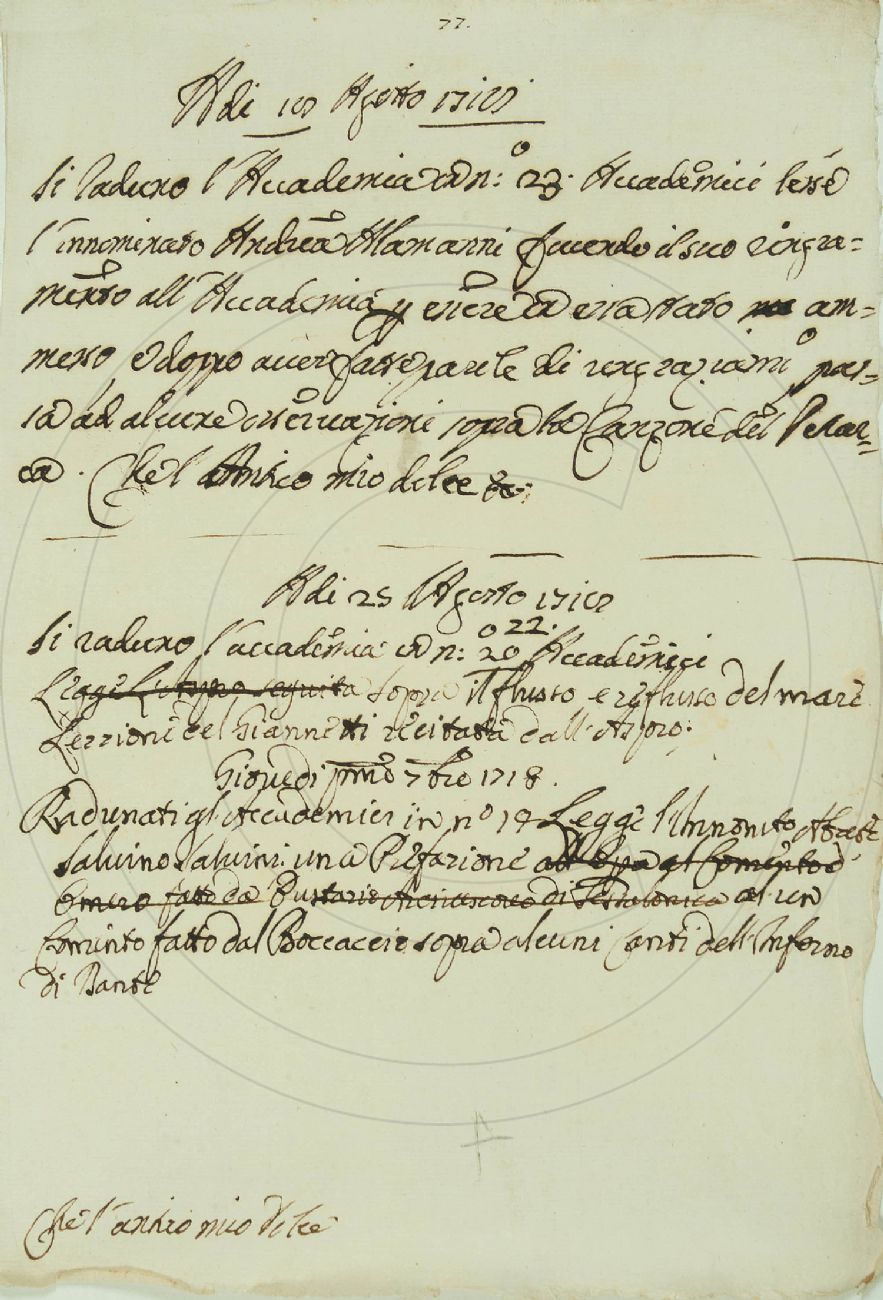 77.
Adi 18 Agosto 1718
Si raduno l'Accademia in n:º 23. Accademici lesse
l'innominato Andrea Alamanni facendo il suo ringra=
mento all'Accademia p essere in essa stato am=
messo, e doppo aver fatte parole di ringraziamᵒ, pas=
sa ad alcune osservazioni sopra la Canzone del Petrar=
ca. Che l'Antico mio dolce &c:
Adi 25 Agosto 1718
22.
Si raduno l'accademia in n:º 20 Accademici
Legge seguita sopra il flusso e reflusso del mare
Lezzione del Giannetti recitata dall'Aspro:
Giovedi pmo 7bre 1718.
Radunati gl'Accademici in nº 19 Legge l'Innonito Abate
Salvino Salvini una Prefazione al Comento d'
Omero fatto da Eustazio Arcivescovo di Tessalonica al un
Comento fatto dal Boccaccio sopra alcuni Canti dell'Inferno
di Dante
Che l'antico mio dolce